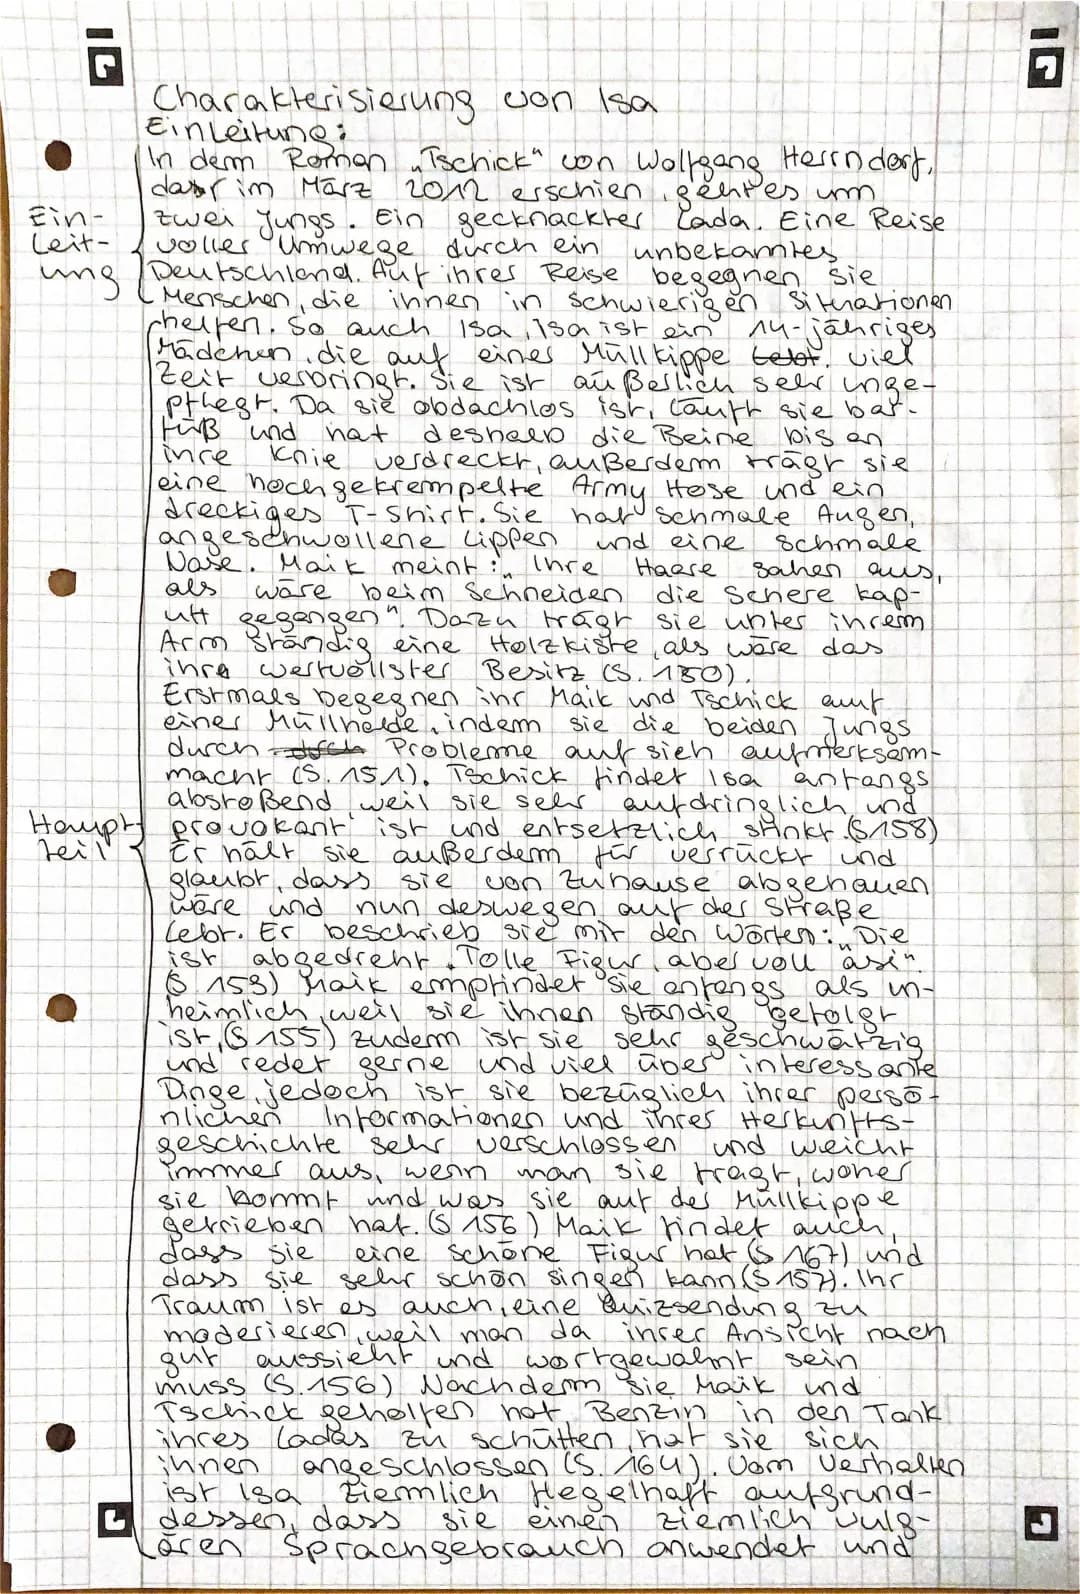 Charakterisierung von Isa
Einleitung:
In dem Roman „Tschick" von Wolfgang Herrndorf,
das im März 2012 erschien, geht es um
zwei Jungs. Ein gecknackter Lada. Eine Reise
voller Umwege durch ein unbekanntes
Deutschland. Auf ihrer Reise begegnen sie
Menschen, die ihnen in schwierigen Situationen
helfen. So auch Isa, Isa ist ein 14-jähriges
Mädchen, die auf einer Müllkippe lebt. viel
Zeit verbringt. Sie ist äußerlich sehr unge-
pflegt. Da sie obdachlos ist, läuft sie bar-
fuß und hat deshalb die Beine bis an
ihre Knie verdreckt, außerdem trägt sie
eine hochgekrempelte Army Hose und ein
dreckiges T-Shirt. Sie hat schmale Augen,
angeschwollene Lippen und eine schmale
Nase. Maik meint: „Ihre Haare sahen aus,
als wäre beim Schneiden die Schere kap-
utt gegangen". Dazu trägt sie unter ihrem
Arm ständig eine Holzkiste, als wäre das
ihr wertvollster Besitz (S. 150).
Erstmals begegnen ihr Maik und Tschick auf
einer Müllhalde, indem sie die beiden Jungs
durch Probleme auf sich aufmerksam-
macht (S. 151). Tschick findet Isa anfangs
abstoßend, weil sie sehr aufdringlich und
provokant ist und entsetzlich stinkt. (S158)
Er hält sie außerdem für verrückt und
glaubt, dass sie von Zuhause abgehauen
wäre und nun deswegen auf der Straße
lebt. Er beschrieb sie mit den Worten: „Die
ist abgedreht. Tolle Figur, aber voll asi".
(S. 153) Maik empfindet sie anfangs als un-
heimlich, weil sie ihnen ständig gefolgt
ist, (S 155) zudem ist sie sehr geschwätzig
und redet gerne und viel über interessante
Dinge, jedoch ist sie bezüglich ihrer persö-
nlichen Informationen und ihrer Herkunfts-
geschichte sehr verschlossen und weicht
immer aus, wenn man sie fragt, woher
sie kommt und was sie auf der Müllkippe
getrieben hat. (S 156) Maik findet auch,
dass sie eine schöne Figur hat (S 167) und
dass sie sehr schön singen kann (S 157). Ihr
Traum ist es auch, eine Quizsendung zu
moderieren, weil man da ihrer Ansicht nach
gut aussieht und wortgewahnt sein
muss (S. 156) Nachdem sie Maik und
Tschick geholfen hat Benzin in den Tank
ihres Ladas zu schütten, hat sie sich
ihnen angeschlossen (S. 164). Vom Verhalten
ist Isa ziemlich flegelhaft aufgrund-
dessen, dass sie einen ziemlich vulg-
ären Sprachgebrauch anwendet und
Ein-
leit-
ung
Haupt-
teil